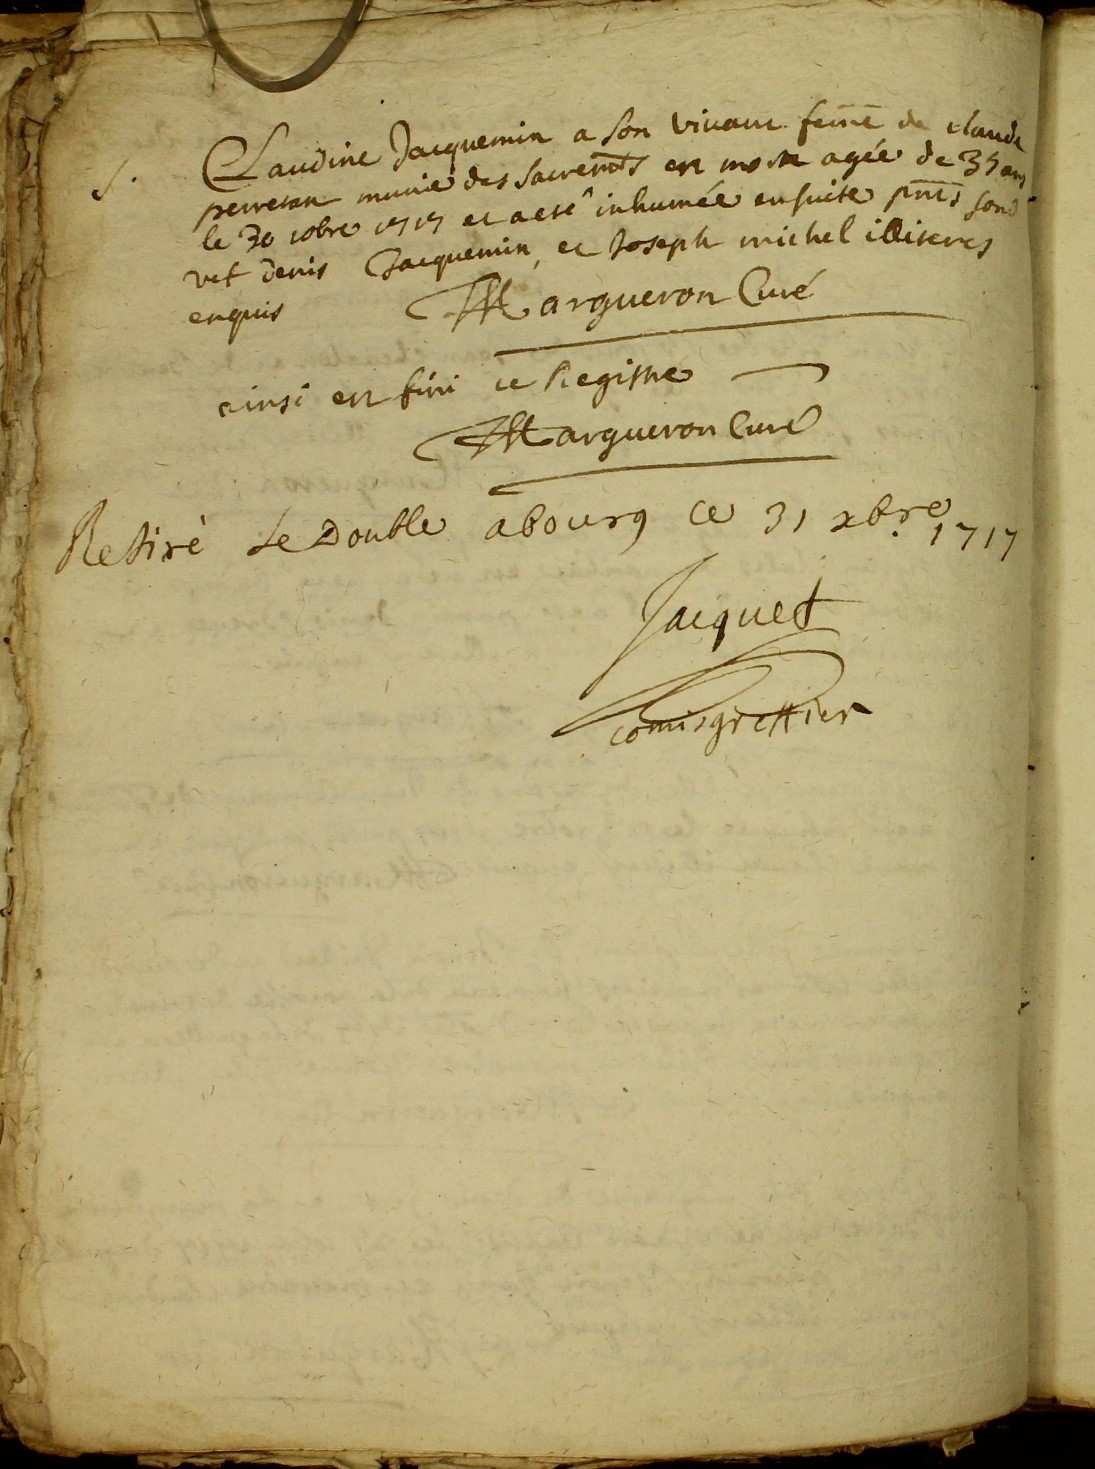 S.
Claudine Jacquemin a son vivant feme de claude
perretan munie des sacremts est morte agée de 35 ans
le 30 xobre 1717 et a eté inhumée ensuite pnts
vet denis Jacquemin, et Joseph michel illiteres
enquis Margueron Curé
ainsi est fini ce Registre
Margueron Curé
Retiré Le Double abourg ce 31 xbre 1717
Jacquet
comis greffier